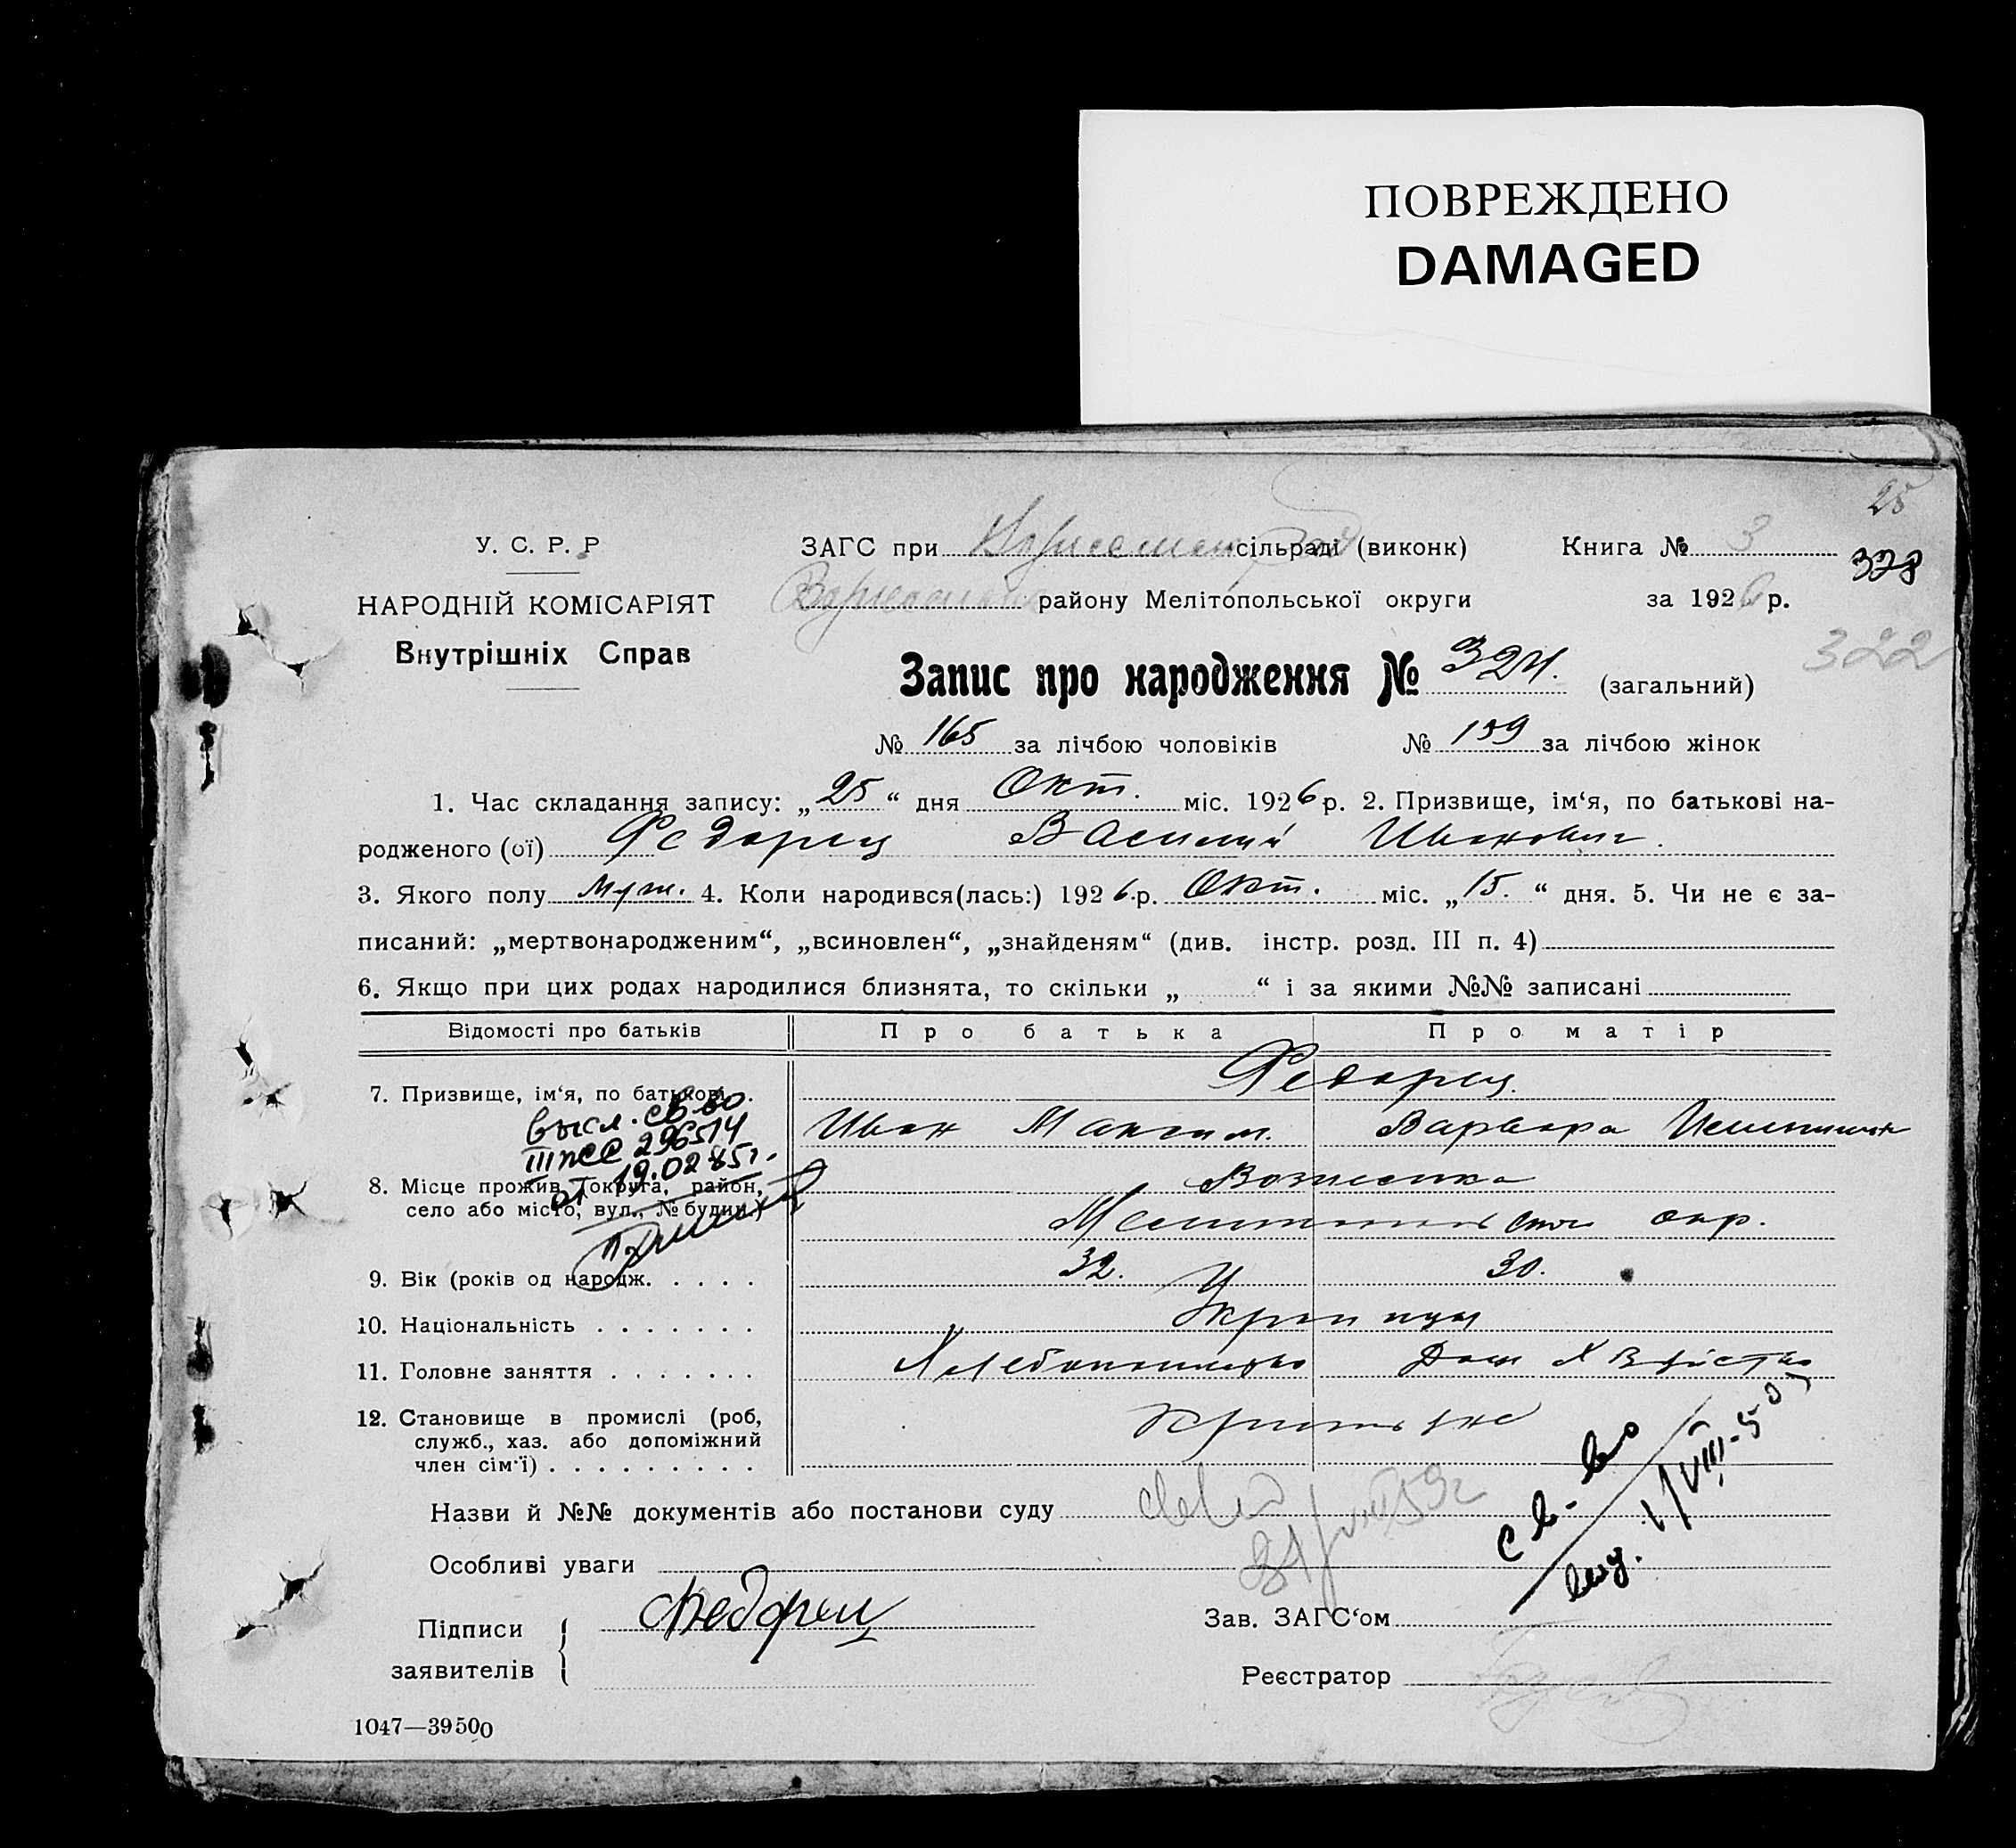 ПОВРЕЖДЕНО
DAMAGED
25
У. С. Р. Р
ЗАГС при сільраді (виконк) Книга № 3
328
НАРОДНІЙ КОМІСАРІЯТ
району Мелітопольської округи за 1926 р.
Внутрішніх Справ
322
Запис про народження № 324. (загальний)
№ 165 за лічбою чоловіків № 159 за лічбою жінок
1. Час складання запису: „25“ дня Окт. міс. 1926 р. 2. Призвище, ім‘я, по батькові на-
родженого (ої) Федорец Василий Иванович.
3. Якого полу муж. 4. Коли народився(лась:) 1926 р. Окт. міс. „15.“ дня. 5. Чи не є за-
писаний: „мертвонародженим“, „всиновлен“, „знайденям“ (див. інстр. розд. III п. 4)
6. Якщо при цих родах народилися близнята, то скільки „ “ і за якими №№ записані
Відомості про батьків Про батька Про матір
Федорец.
7. Призвище, ім‘я, по батькові
Иван Максим. Варвара
высл. св-во
19.02.85г.
8. Місце прожив. (округа, район,
село або місто, вул., № будин.)
Вознесенка
окр.
9. Вік (років од народж. 32. 30.
10. Національність Украинцы
11. Головне заняття Хлебопашество Дом Хазяйство
12. Становище в промислі (роб,
служб., хаз. або допоміжний
член сім‘ї)
св-во
выд. 1/VIII-50г
Назви й №№ документів або постанови суду
31/VIII 59г
Особливі уваги
Підписи
заявителів
Федорец
Зав. ЗАГС‘ом
Реєстратор
1047—39500